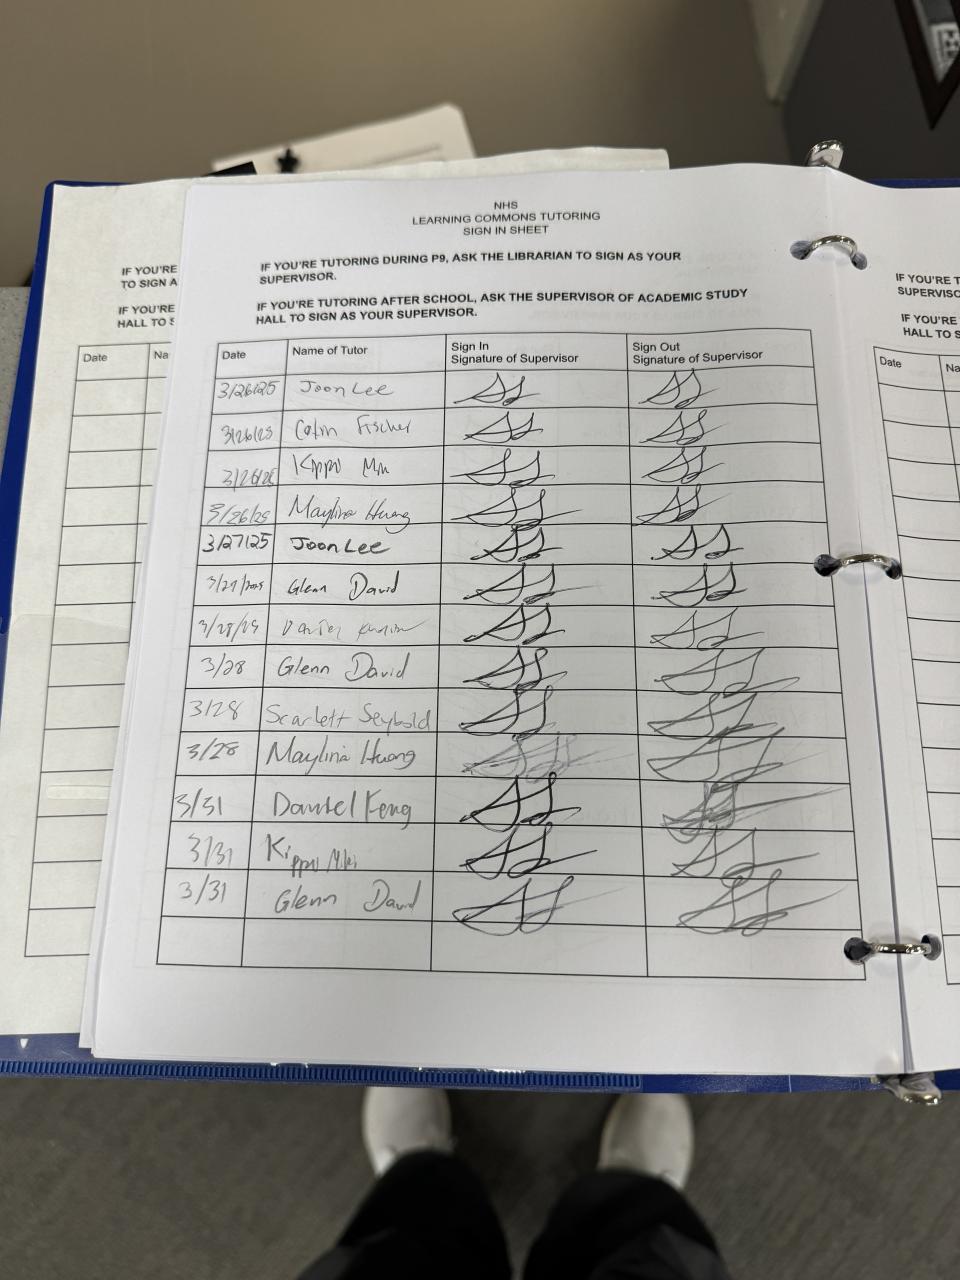 NHS
LEARNING COMMONS TUTORING
SIGN IN SHEET
IF YOU'RE TUTORING DURING P9, ASK THE LIBRARIAN TO SIGN AS YOUR
SUPERVISOR.
IF YOU'RE TUTORING AFTER SCHOOL, ASK THE SUPERVISOR OF ACADEMIC STUDY
HALL TO SIGN AS YOUR SUPERVISOR.
Date Name of Tutor Sign In Signature of Supervisor Sign Out Signature of Supervisor
3/26/25 Joon Lee
3/26/25 Colin Fischer
3/26/25 Kippo
3/26/25 Maylina Huang
3/27/25 Joon Lee
3/27/2025 Glenn David
3/28/25
3/28 Glenn David
3/28 Scarlett Seybold
3/28 Maylina Huang
3/31 Daniel Keng
3/31 Kippo
3/31 Glenn David
IF YOU'RE
TO SIGN A
IF YOU'RE
HALL TO S
Date Na
IF YOU'RE T
SUPERVISO
IF YOU'RE
HALL TO
Date Na